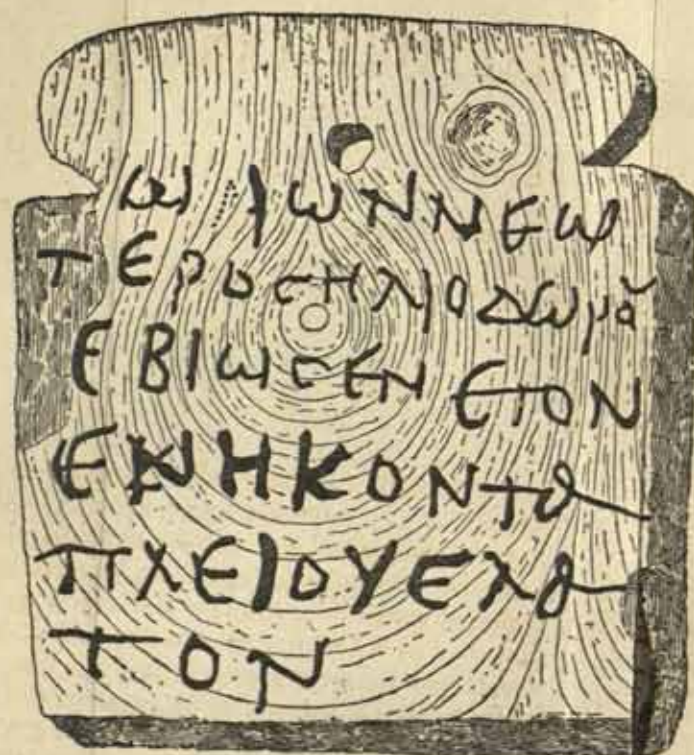 ωιιωννεω
τεροϲηλιοδωρο̆
εβιωϲεν ετον
ενηκοντα
πλειουελα
τον